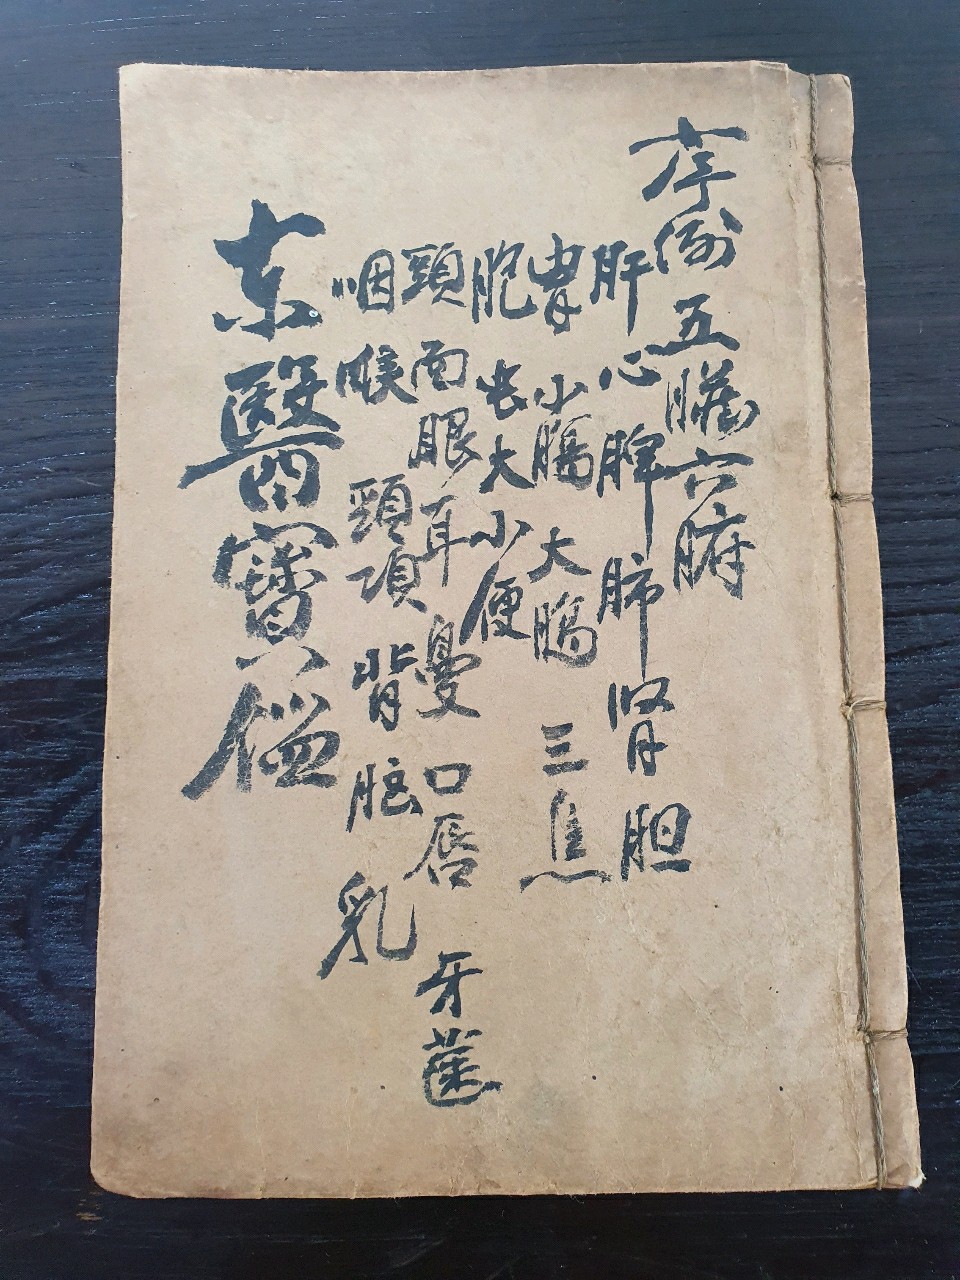 序例五臟六腑
肝心脾肺腎胆
胃小腸大腸三焦
胞虫大小便
頭面眼耳鼻口唇牙齒
咽喉頸項背胸乳
東醫寶鑑